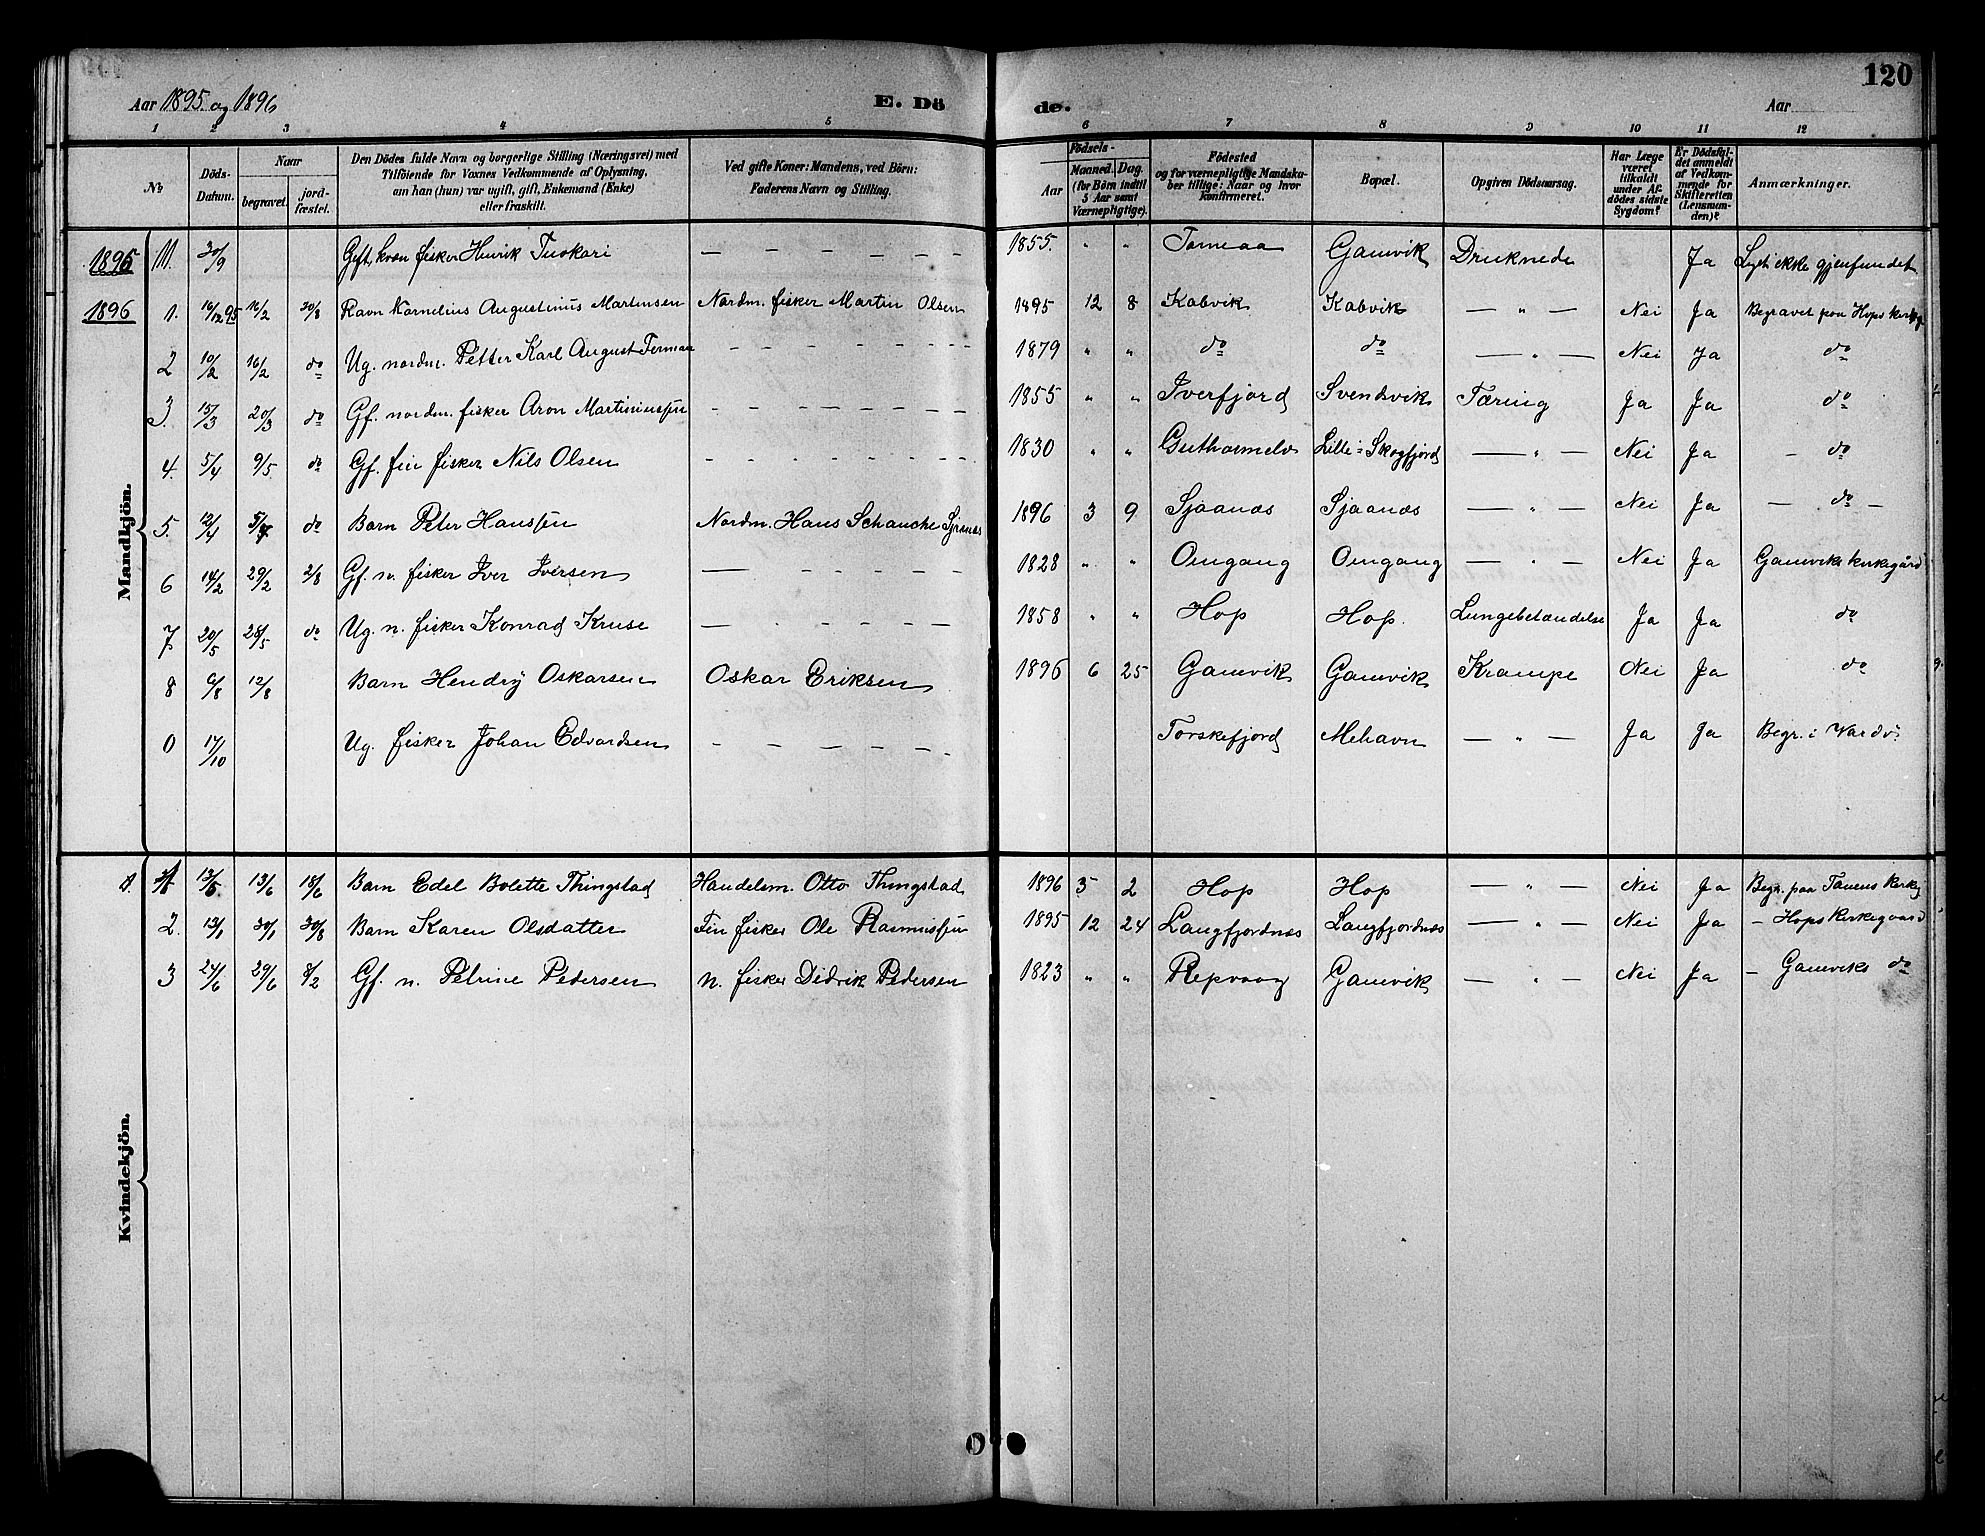 120
Aar 1895 og 1896 E. Dö de. Aar
1 2 3 4 5 6 7 8 9 10 11 12
No Döds-Datum. Naar begravet. jord-fæstet. Den Dödes fulde Navn og borgerlige Stilling (Næringsvei) med Tilföiende for Voxnes Vedkommende af Oplysning, om han (hun) var ugift, gift, Enkemand (Enke) eller fraskilt. Ved gifte Koner: Mandens, ved Börn: Faderens Navn og Stilling. Födsels- Aar Maaned. Dag. (for Börn indtil 5 Aar samt Værnepligtige). Födested og for værnepligtige Mandska-ber tillige: Naar og hvor konfirmeret. Bopæl. Opgiven Dödsaarsag. Har Læge været tilkaldt under Af-dödes sidste Sygdom? Er Dödsfal-det anmeldt af Vedkom-mende for Skifteretten (Lensman-den)? Anmærkninger.
Mandkjön.
1895 11. 30/9 Gift, kvæn fisker Henrik Tuokari — — — — — 1855. " " Torneaa Gamvik Druknede Ja Liget ikke gjenfundet
1896 1. 10/12 95 16/2 30/8 Kornelius Augustinus Martinsen Nordm. fisker Martin Olsen 1895 12 8 Kabvik Kabvik — " — Nei Ja Begravet paa Hops kirkeg.
2 10/2 16/2 do Ug. nordm. Petter Karl August - - - - - - 1879 " " do do — " — Nei Ja do
3. 15/3 20/3 do Gf. nordm. fisker Aron Martiniussen - - - - - - 1855 " " Iverfjord Svendvik Tæring Ja Ja do
4. 5/4 9/5 do Gf. fin fisker Nils Olsen - - - - - - 1830 " " Lille-Skogfjord — " — Nei Ja - do
5. 12/4 do Barn Peter Hanssen Nordm. Hans Schanche Sjaanæs 1896 3 9 Sjaanæs Sjaanæs — " — Nei Ja — do —
6 14/2 29/2 2/8 Gf. n. fisker Iver Iversen — - - - - - 1828 " " Omgang Omgang — " — Nei Ja Gamviks kirkegård
7. 20/5 28/5 do Ug. n. fisker Konrad Kruse — - - - - - 1858 " " Hop Hop. Lungebetændelse Ja Ja do
8 6/8 12/8 Barn Hendry Oskarsen Oskar Eriksen 1896 6 25 Gamvik Gamvik Krampe Nei Ja do
0 17/10 Ug. fisker Johan Edvardsen - - - - - - Torskefjord Mehavn — " — Ja Ja Begr. i Vardø
Kvindekjön.
1. 13/5 13/6 18/6 Barn Edel Bolette Thingstad Handelsm. Otto Thingstad 1896 5 2 Hop Hop — " — Nei Ja Begr. paa Tanens kirkeg
2. 13/1 30/1 30/8 Barn Karen Olsdatter Fin fisker Ole Rasmussen 1895 12 24 Langfjordnæs Langfjordnæs — " — Nei Ja - Hops kirkegaard
3 24/6 29/6 8/2 Gf. n. Petrine Pedersen n. fisker Didrik Pedersen 1823 " " Repvaag Gamvik — " — Nei Ja - Gamviks do